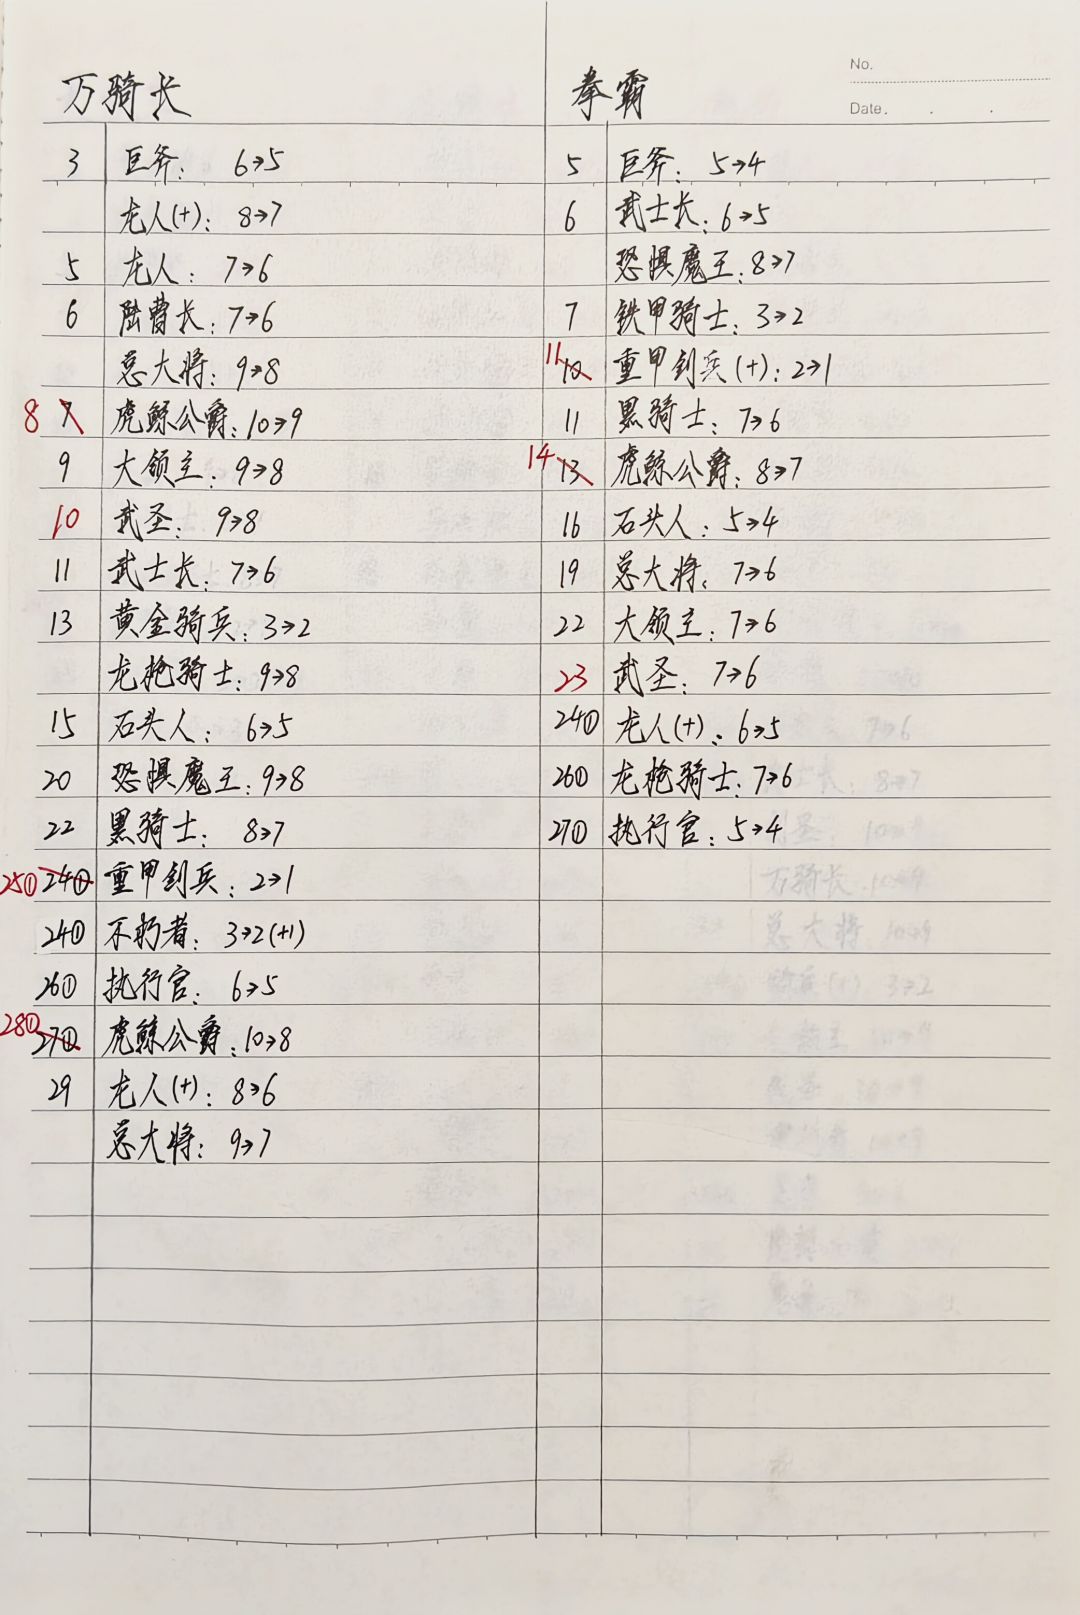 No.
Date. . .
万骑长
3 巨斧: 6→5
龙人(+): 8→7
5 龙人: 7→6
6 陆曹长: 7→6
总大将: 9→8
8 7 虎鲸公爵: 10→9
9 大领主: 9→8
10 武圣: 9→8
11 武士长: 7→6
13 黄金骑兵: 3→2
龙枪骑士: 9→8
15 石头人: 6→5
20 恐惧魔王: 9→8
22 黑骑士: 8→7
25① 24① 重甲剑兵: 2→1
24① 不朽者: 3→2(+1)
26① 执行官: 6→5
28① 27① 虎鲸公爵: 10→8
29 龙人(+): 8→6
总大将: 9→7
拳霸
5 巨斧: 5→4
6 武士长: 6→5
恐惧魔王: 8→7
7 铁甲骑士: 3→2
11 10 重甲剑兵(+): 2→1
11 黑骑士: 7→6
14 13 虎鲸公爵: 8→7
16 石头人: 5→4
19 总大将: 7→6
22 大领主: 7→6
23 武圣: 7→6
24① 龙人(+): 6→5
26① 龙枪骑士: 7→6
27① 执行官: 5→4